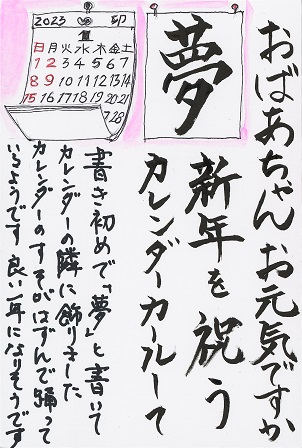 おばあちゃん お元気ですか
夢
新年を祝う
カレンダーカールして
書き初めで「夢」と書いて
カレンダーの隣に飾りました
カレンダーのすそがはずんで踊って
いるようです 良い一年になりそうです
2023 卯
日月火水木金土
1 2 3 4 5 6 7
8 9 10 11 12 13 14
15 16 17 18 19 20 21
28